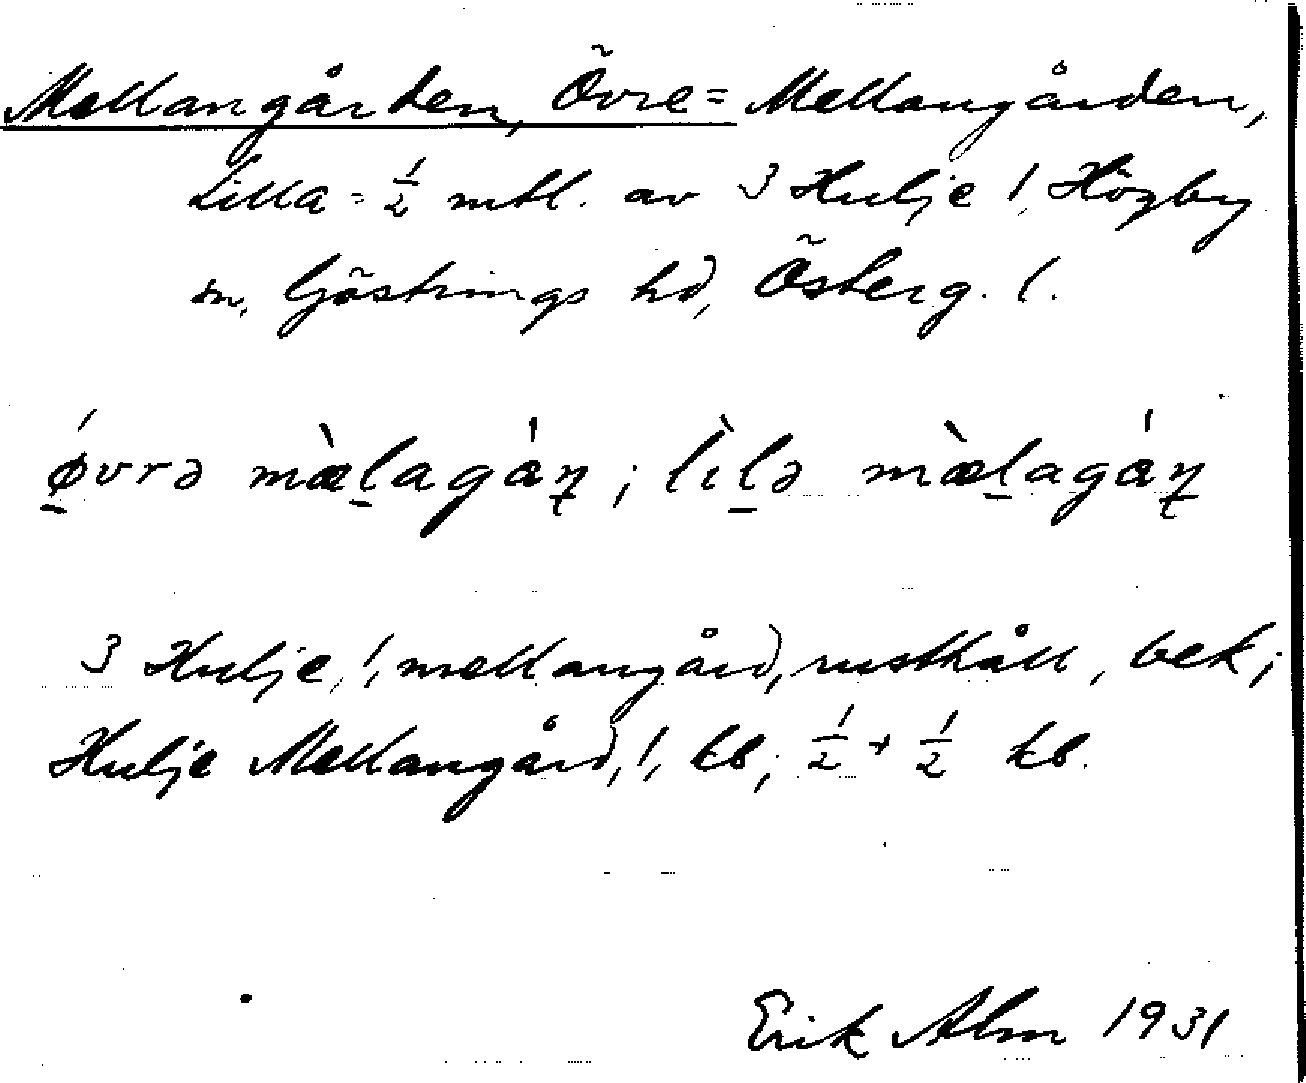 Mellangården, Övre = Mellangården,
Lilla = 1/2 mtl. av 3 Hulje 1, Högby
sn, Göstrings hd, Österg. l.
ǿvrə mæ̀l̠agáɳ; lìl̠ə mæ̀l̠agáɳ
3 Hulje, 1, mellangård, rusthåll, bek;
Hulje Mellangård, 1, kb; 1/2 + 1/2 kb.
Erik Alm 1931